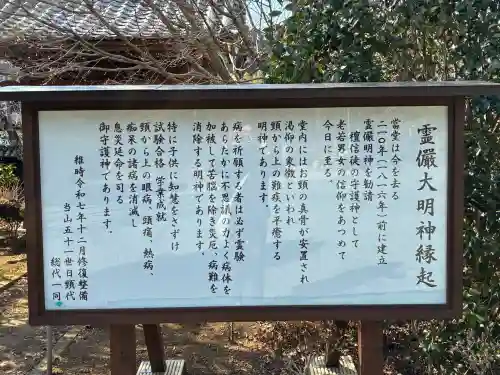 霊儼大明神縁起
当堂は今を去る
二一〇年（一八一六年）前に建立
霊儼明神を勧請
檀信徒の守護神として
老若男女の信仰をあつめて
今日に至る。
堂内にはお頸の真骨が安置され
渇仰の象徴といわれ
頸から上の難疾を平癒する
明神であります。
病を祈願する者は必ず霊験
あらたかに不思議の力よく病体を
加被して苦脳を除き災厄、病難を
消除する明神であります。
特に子供に知慧をさずけ
試験合格　学業成就
頸から上の眼病、頭痛、熱病、
痴呆の諸病を消滅し
息災延命を司る
御守護神であります。
維時令和七年十二月修復整備
当山五十一世日顗代
総代一同